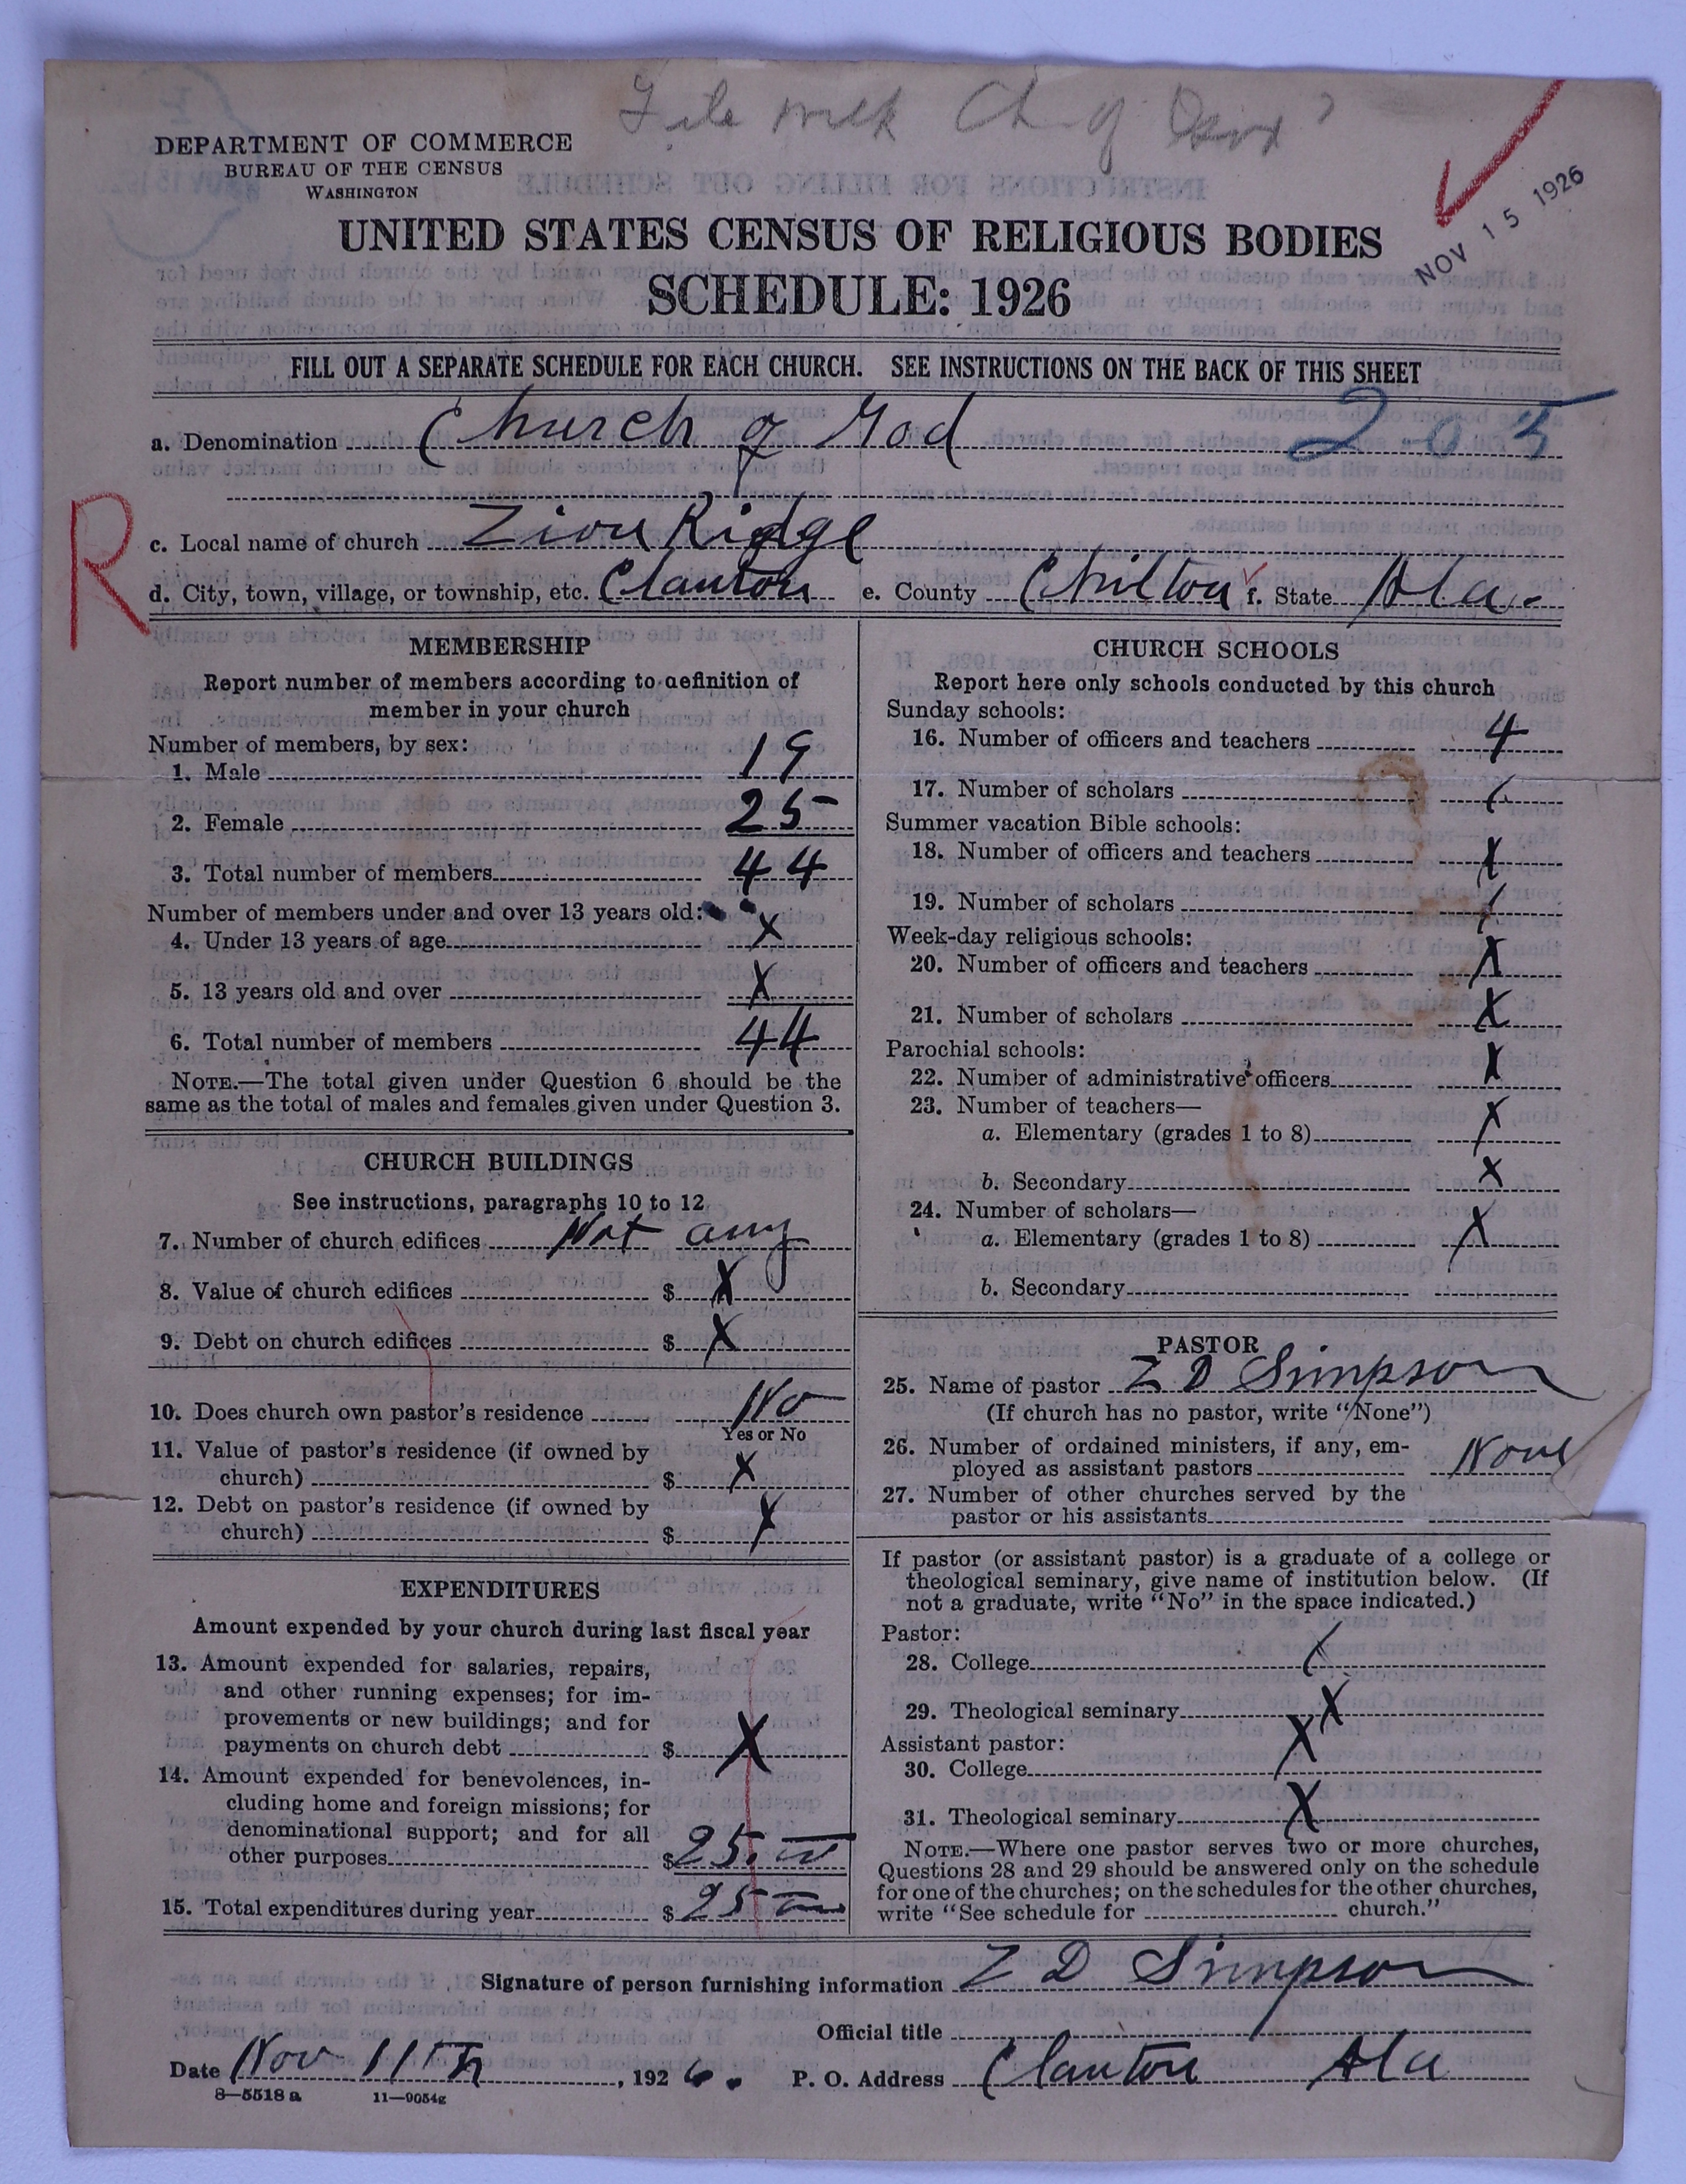 File with Ch of
DEPARTMENT OF COMMERCE
BUREAU OF THE CENSUS
WASHINGTON
NOV 15 1926
UNITED STATES CENSUS OF RELIGIOUS BODIES
SCHEDULE: 1926
FILL OUT A SEPARATE SCHEDULE FOR EACH CHURCH. SEE INSTRUCTIONS ON THE BACK OF THIS SHEET
a. Denomination Church of God 2-0-5
R
c. Local name of church Zion Ridge
d. City, town, village, or township, etc. Clanton e. County Chilton f. State Ala.
MEMBERSHIP
Report number of members according to definition of
member in your church
Number of members, by sex:
1. Male 19
2. Female 25
3. Total number of members 44
Number of members under and over 13 years old:
4. Under 13 years of age X
5. 13 years old and over X
6. Total number of members 44
NOTE.—The total given under Question 6 should be the
same as the total of males and females given under Question 3.
CHURCH BUILDINGS
See instructions, paragraphs 10 to 12
7. Number of church edifices Not any
8. Value of church edifices $ X
9. Debt on church edifices $ X
10. Does church own pastor's residence No
Yes or No
11. Value of pastor's residence (if owned by
church) $ X
12. Debt on pastor's residence (if owned by
church) $ X
EXPENDITURES
Amount expended by your church during last fiscal year
13. Amount expended for salaries, repairs,
and other running expenses; for im-
provements or new buildings; and for
payments on church debt $ X
14. Amount expended for benevolences, in-
cluding home and foreign missions; for
denominational support; and for all
other purposes $ 25.00
15. Total expenditures during year $ 25 00
CHURCH SCHOOLS
Report here only schools conducted by this church
Sunday schools:
16. Number of officers and teachers 4
17. Number of scholars
Summer vacation Bible schools:
18. Number of officers and teachers X
19. Number of scholars
Week-day religious schools:
20. Number of officers and teachers X
21. Number of scholars X
Parochial schools:
22. Number of administrative officers X
23. Number of teachers—
a. Elementary (grades 1 to 8) X
b. Secondary X
24. Number of scholars—
a. Elementary (grades 1 to 8) X
b. Secondary
PASTOR
25. Name of pastor Z D Simpson
(If church has no pastor, write "None")
26. Number of ordained ministers, if any, em-
ployed as assistant pastors None
27. Number of other churches served by the
pastor or his assistants
If pastor (or assistant pastor) is a graduate of a college or
theological seminary, give name of institution below. (If
not a graduate, write "No" in the space indicated.)
Pastor:
28. College
29. Theological seminary X
Assistant pastor:
30. College X
31. Theological seminary X
NOTE.—Where one pastor serves two or more churches,
Questions 28 and 29 should be answered only on the schedule
for one of the churches; on the schedules for the other churches,
write "See schedule for church."
Signature of person furnishing information Z D Simpson
Official title
Date Nov 11th, 1926. P. O. Address Clanton Ala
8—5518 a 11—9054g